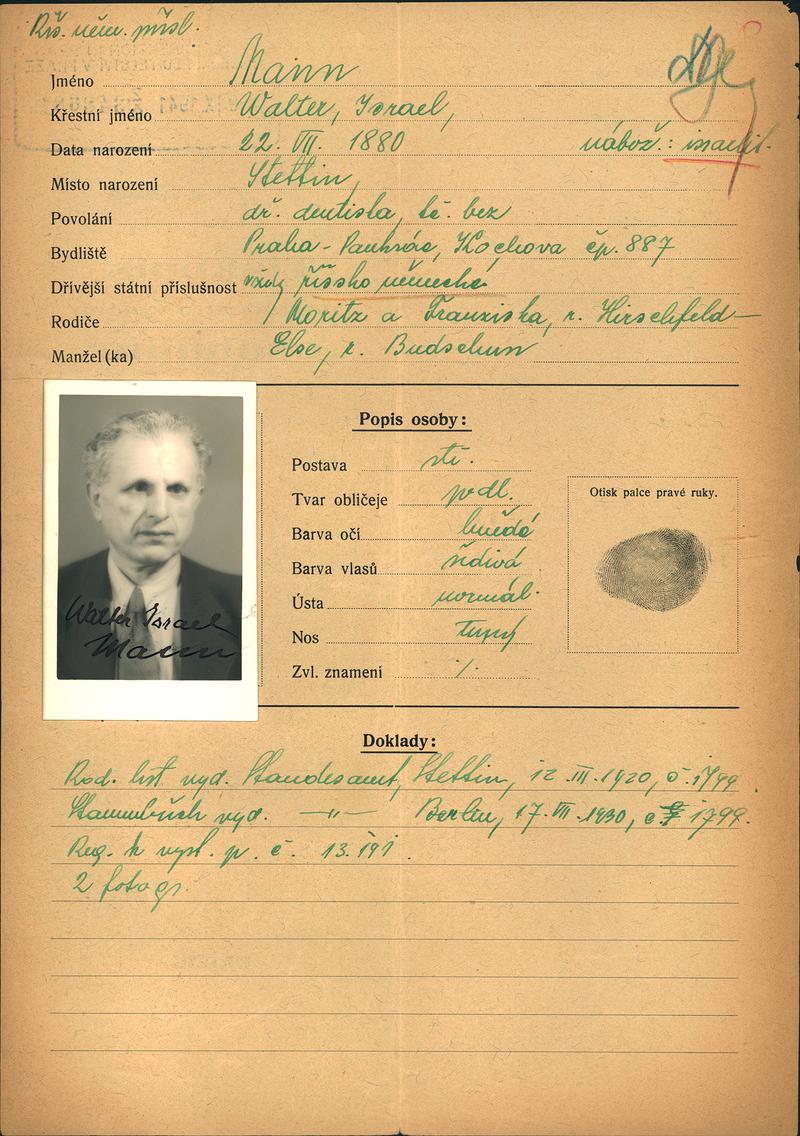 Říš. něm. přísl.
Jméno Mann
Křestní jméno Walter, Israel,
Data narození 22. VII. 1880 nábož.: israelit.
Místo narození Stettin,
Povolání dř. dentista, tč. bez
Bydliště Praha - Pankrác, Kochova čp. 887
Dřívější státní příslušnost vždy říšsko německé
Rodiče Moritz a Franziska, r. Hirschfeld
Manžel (ka) Else, r. Budschun
Popis osoby:
Postava stř.
Tvar obličeje podl.
Barva očí hnědé
Barva vlasů šedivá
Ústa normál.
Nos tupý
Zvl. znamení ./.
Otisk palce pravé ruky.
Walter Israel
Mann
Doklady:
Rod. list vyd. Standesamt, Stettin, 12. III. 1920, č. 1799
Stammbuch vyd. —"— Berlin, 17. VII. 1930, č. 1799.
Reg. k vyst. p. č. 13.191.
2 fotogr.